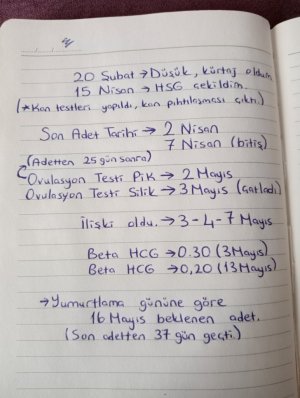 20 Şubat → Düşük, kürtaj oldum
15 Nisan → HSG çekildim.
(*Kan testleri yapıldı, kan pıhtılaşması çıktı.)
Son Adet Tarihi → 2 Nisan
7 Nisan (bitiş)
(Adetten 25 gün sonra)
Ovulasyon Testi Pik → 2 Mayıs
Ovulasyon Testi Silik → 3 Mayıs (çatladı)
İlişki oldu. → 3-4-7 Mayıs
Beta HCG → 0.30 (3 Mayıs)
Beta HCG → 0,20 (13 Mayıs)
→ Yumurtlama gününe göre
16 Mayıs beklenen adet.
(Son adetten 37 gün geçti.)